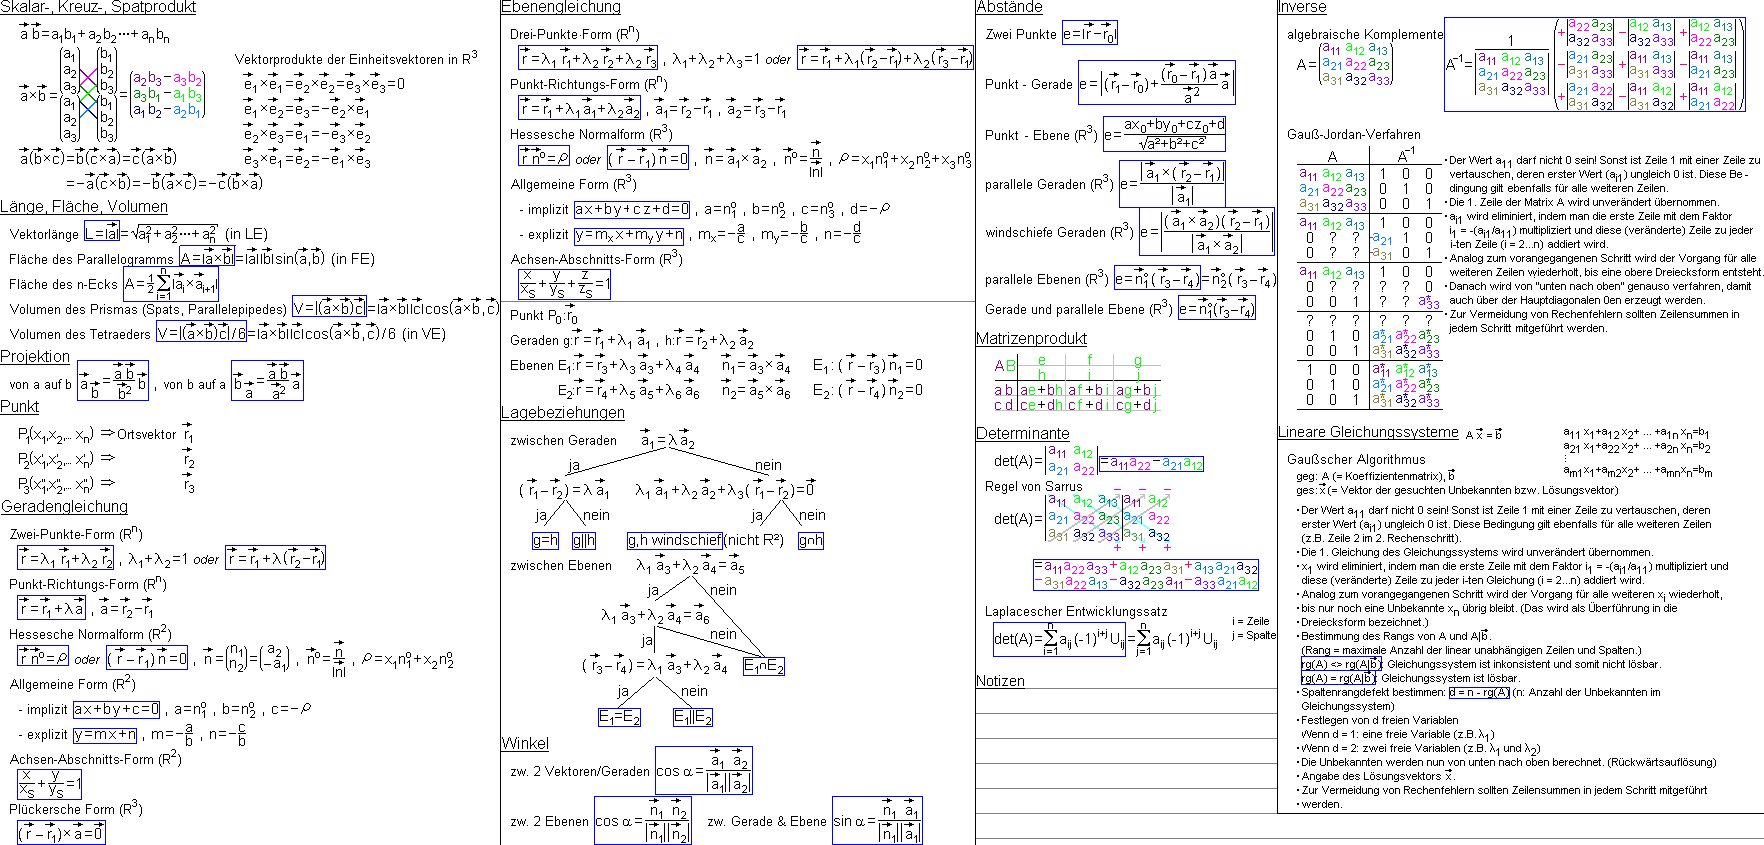 Skalar-, Kreuz-, Spatprodukt
a⃗ b⃗ = a₁b₁ + a₂b₂ ··· + aₙbₙ
Vektorprodukte der Einheitsvektoren in R³
a⃗×b⃗ = (a₁ a₂ a₃ a₁ a₂ a₃) (b₁ b₂ b₃ b₁ b₂ b₃) = (a₂b₃−a₃b₂ a₃b₁−a₁b₃ a₁b₂−a₂b₁)
e⃗₁×e⃗₁=e⃗₂×e⃗₂=e⃗₃×e⃗₃=0
e⃗₁×e⃗₂=e⃗₃=−e⃗₂×e⃗₁
e⃗₂×e⃗₃=e⃗₁=−e⃗₃×e⃗₂
e⃗₃×e⃗₁=e⃗₂=−e⃗₁×e⃗₃
a⃗(b⃗×c⃗)=b⃗(c⃗×a⃗)=c⃗(a⃗×b⃗)
=−a⃗(c⃗×b⃗)=−b⃗(a⃗×c⃗)=−c⃗(b⃗×a⃗)
Länge, Fläche, Volumen
Vektorlänge L=|a⃗|=√a₁²+a₂²···+aₙ² (in LE)
Fläche des Parallelogramms A=|a⃗×b⃗|=|a⃗||b⃗|sin(a⃗,b⃗) (in FE)
Fläche des n-Ecks A=½ Σ i=1 n |a⃗ᵢ×a⃗ᵢ₊₁|
Volumen des Prismas (Spats, Parallelepipedes) V=|(a⃗×b⃗)c⃗|=|a⃗×b⃗||c⃗|cos(a⃗×b⃗,c⃗)
Volumen des Tetraeders V=|(a⃗×b⃗)c⃗|/6=|a⃗×b⃗||c⃗|cos(a⃗×b⃗,c⃗)/6 (in VE)
Projektion
von a auf b a⃗_b⃗ = (a⃗ b⃗ / b⃗²) b⃗ , von b auf a b⃗_a⃗ = (a⃗ b⃗ / a⃗²) a⃗
Punkt
P₁(x₁,x₂,... xₙ) ⇒ Ortsvektor r⃗₁
P₂(x₁',x₂',... xₙ') ⇒ r⃗₂
P₃(x₁'',x₂'',... xₙ'') ⇒ r⃗₃
Geradengleichung
Zwei-Punkte-Form (Rⁿ)
r⃗=λ₁ r⃗₁+λ₂ r⃗₂ , λ₁+λ₂=1 oder r⃗=r⃗₁+λ(r⃗₂−r⃗₁)
Punkt-Richtungs-Form (Rⁿ)
r⃗=r⃗₁+λa⃗ , a⃗=r⃗₂−r⃗₁
Hessesche Normalform (R²)
r⃗ n⃗°=ρ oder (r⃗−r⃗₁)n⃗=0 , n⃗=(n₁ n₂)=(a₂ −a₁) , n⃗°=n⃗/|n⃗| , ρ=x₁n₁°+x₂n₂°
Allgemeine Form (R²)
- implizit ax+by+c=0 , a=n₁° , b=n₂° , c=−ρ
- explizit y=mx+n , m=−a/b , n=−c/b
Achsen-Abschnitts-Form (R²)
x/xₛ+y/yₛ=1
Plückersche Form (R³)
(r⃗−r⃗₁)×a⃗=0⃗
Ebenengleichung
Drei-Punkte-Form (Rⁿ)
r⃗=λ₁ r⃗₁+λ₂ r⃗₂+λ₂ r⃗₃ , λ₁+λ₂+λ₃=1 oder r⃗=r⃗₁+λ₁(r⃗₂−r⃗₁)+λ₂(r⃗₃−r⃗₁)
Punkt-Richtungs-Form (Rⁿ)
r⃗=r⃗₁+λ₁a⃗₁+λ₂a⃗₂ , a⃗₁=r⃗₂−r⃗₁ , a⃗₂=r⃗₃−r⃗₁
Hessesche Normalform (R³)
r⃗ n⃗°=ρ oder (r⃗−r⃗₁)n⃗=0 , n⃗=a⃗₁×a⃗₂ , n⃗°=n⃗/|n⃗| , ρ=x₁n₁°+x₂n₂°+x₃n₃°
Allgemeine Form (R³)
- implizit ax+by+cz+d=0 , a=n₁° , b=n₂° , c=n₃° , d=−ρ
- explizit y=mₓx+m_y y+n , mₓ=−a/c , m_y=−b/c , n=−d/c
Achsen-Abschnitts-Form (R³)
x/xₛ+y/yₛ+z/zₛ=1
Punkt P₀:r⃗₀
Geraden g:r⃗=r⃗₁+λ₁a⃗₁ , h:r⃗=r⃗₂+λ₂a⃗₂
Ebenen E₁:r⃗=r⃗₃+λ₃a⃗₃+λ₄a⃗₄ n⃗₁=a⃗₃×a⃗₄ E₁:(r⃗−r⃗₃)n⃗₁=0
E₂:r⃗=r⃗₄+λ₅a⃗₅+λ₆a⃗₆ n⃗₂=a⃗₅×a⃗₆ E₂:(r⃗−r⃗₄)n⃗₂=0
Lagebeziehungen
zwischen Geraden a⃗₁=λa⃗₂
ja nein
(r⃗₁−r⃗₂)=λa⃗₁ λ₁a⃗₁+λ₂a⃗₂+λ₃(r⃗₁−r⃗₂)=0⃗
ja nein ja nein
g=h g||h g,h windschief (nicht R²) g∩h
zwischen Ebenen λ₁a⃗₃+λ₂a⃗₄=a⃗₅
ja nein
λ₁a⃗₃+λ₂a⃗₄=a⃗₆
ja nein
(r⃗₃−r⃗₄)=λ₁a⃗₃+λ₂a⃗₄ E₁∩E₂
ja nein
E₁=E₂ E₁||E₂
Winkel
zw. 2 Vektoren/Geraden cos α=a⃗₁ a⃗₂/|a⃗₁||a⃗₂|
zw. 2 Ebenen cos α=n⃗₁ n⃗₂/|n⃗₁||n⃗₂| zw. Gerade & Ebene sin α=n⃗₁ a⃗₁/|n⃗₁||a⃗₁|
Abstände
Zwei Punkte e=|r⃗−r⃗₀|
Punkt - Gerade e=|(r⃗₁−r⃗₀)+((r⃗₀−r⃗₁)a⃗/a⃗²)a⃗|
Punkt - Ebene (R³) e=ax₀+by₀+cz₀+d/√a²+b²+c²
parallele Geraden (R³) e=|a⃗₁×(r⃗₂−r⃗₁)|/|a⃗₁|
windschiefe Geraden (R³) e=|(a⃗₁×a⃗₂)(r⃗₂−r⃗₁)|/|a⃗₁×a⃗₂|
parallele Ebenen (R³) e=n⃗₁°(r⃗₃−r⃗₄)=n⃗₂°(r⃗₃−r⃗₄)
Gerade und parallele Ebene (R³) e=n⃗₁°(r⃗₃−r⃗₄)
Matrizenprodukt
A B e f g
h i j
a b ae+bh af+bi ag+bj
c d ce+dh cf+di cg+dj
Determinante
det(A)=|a₁₁ a₁₂ a₂₁ a₂₂|=a₁₁a₂₂−a₂₁a₁₂
Regel von Sarrus
− − −
a₁₁ a₁₂ a₁₃ a₁₁ a₁₂
det(A)= a₂₁ a₂₂ a₂₃ a₂₁ a₂₂
a₃₁ a₃₂ a₃₃ a₃₁ a₃₂
+ + +
=a₁₁a₂₂a₃₃+a₁₂a₂₃a₃₁+a₁₃a₂₁a₃₂
−a₃₁a₂₂a₁₃−a₃₂a₂₃a₁₁−a₃₃a₂₁a₁₂
Laplacescher Entwicklungssatz
det(A)=Σ i=1 n aᵢⱼ(-1)ⁱ⁺ʲUᵢⱼ=Σ j=1 n aᵢⱼ(-1)ⁱ⁺ʲUᵢⱼ
i = Zeile
j = Spalte
Notizen
Inverse
algebraische Komplemente
A=(a₁₁ a₁₂ a₁₃
a₂₁ a₂₂ a₂₃
a₃₁ a₃₂ a₃₃)
A⁻¹= 1 / |a₁₁ a₁₂ a₁₃ a₂₁ a₂₂ a₂₃ a₃₁ a₃₂ a₃₃|
+|a₂₂ a₂₃ a₃₂ a₃₃| −|a₁₂ a₁₃ a₃₂ a₃₃| +|a₁₂ a₁₃ a₂₂ a₂₃|
−|a₂₁ a₂₃ a₃₁ a₃₃| +|a₁₁ a₁₃ a₃₁ a₃₃| −|a₁₁ a₁₃ a₂₁ a₂₃|
+|a₂₁ a₂₂ a₃₁ a₃₂| −|a₁₁ a₁₂ a₃₁ a₃₂| +|a₁₁ a₁₂ a₂₁ a₂₂|
Gauß-Jordan-Verfahren
A A⁻¹
a₁₁ a₁₂ a₁₃ 1 0 0
a₂₁ a₂₂ a₂₃ 0 1 0
a₃₁ a₃₂ a₃₃ 0 0 1
a₁₁ a₁₂ a₁₃ 1 0 0
0 ? ? -a₂₁ 1 0
0 ? ? -a₃₁ 0 1
a₁₁ a₁₂ a₁₃ 1 0 0
0 ? ? ? ? 0
0 0 1 ? ? a*₃₃
? ? ? ? ? ?
0 1 0 a*₂₁ a*₂₂ a*₂₃
0 0 1 a*₃₁ a*₃₂ a*₃₃
1 0 0 a*₁₁ a*₁₂ a*₁₃
0 1 0 a*₂₁ a*₂₂ a*₂₃
0 0 1 a*₃₁ a*₃₂ a*₃₃
· Der Wert a₁₁ darf nicht 0 sein! Sonst ist Zeile 1 mit einer Zeile zu
vertauschen, deren erster Wert (aᵢ₁) ungleich 0 ist. Diese Be-
dingung gilt ebenfalls für alle weiteren Zeilen.
· Die 1. Zeile der Matrix A wird unverändert übernommen.
· aᵢ₁ wird eliminiert, indem man die erste Zeile mit dem Faktor
i₁ = -(aᵢ₁/a₁₁) multipliziert und diese (veränderte) Zeile zu jeder
i-ten Zeile (i = 2...n) addiert wird.
· Analog zum vorangegangenen Schritt wird der Vorgang für alle
weiteren Zeilen wiederholt, bis eine obere Dreiecksform entsteht.
· Danach wird von "unten nach oben" genauso verfahren, damit
auch über der Hauptdiagonalen 0en erzeugt werden.
· Zur Vermeidung von Rechenfehlern sollten Zeilensummen in
jedem Schritt mitgeführt werden.
Lineare Gleichungssysteme A x⃗ = b⃗
a₁₁ x₁+a₁₂ x₂+ ... +a₁ₙ xₙ=b₁
a₂₁ x₁+a₂₂ x₂+ ... +a₂ₙ xₙ=b₂
⋮
aₘ₁x₁+aₘ₂x₂+ ... +aₘₙxₙ=bₘ
Gaußscher Algorithmus
geg: A (= Koeffizientenmatrix), b⃗
ges: x⃗ (= Vektor der gesuchten Unbekannten bzw. Lösungsvektor)
· Der Wert a₁₁ darf nicht 0 sein! Sonst ist Zeile 1 mit einer Zeile zu vertauschen, deren
erster Wert (aᵢ₁) ungleich 0 ist. Diese Bedingung gilt ebenfalls für alle weiteren Zeilen
(z.B. Zeile 2 im 2. Rechenschritt).
· Die 1. Gleichung des Gleichungssystems wird unverändert übernommen.
· x₁ wird eliminiert, indem man die erste Zeile mit dem Faktor i₁ = -(aᵢ₁/a₁₁) multipliziert und
diese (veränderte) Zeile zu jeder i-ten Gleichung (i = 2...n) addiert wird.
· Analog zum vorangegangenen Schritt wird der Vorgang für alle weiteren xᵢ wiederholt,
· bis nur noch eine Unbekannte xₙ übrig bleibt. (Das wird als Überführung in die
· Dreiecksform bezeichnet.)
· Bestimmung des Rangs von A und A|b⃗.
(Rang = maximale Anzahl der linear unabhängigen Zeilen und Spalten.)
rg(A) <> rg(A|b⃗): Gleichungssystem ist inkonsistent und somit nicht lösbar.
rg(A) = rg(A|b⃗): Gleichungssystem ist lösbar.
· Spaltenrangdefekt bestimmen: d = n - rg(A) (n: Anzahl der Unbekannten im
Gleichungssystem)
· Festlegen von d freien Variablen
Wenn d = 1: eine freie Variable (z.B. λ₁)
· Wenn d = 2: zwei freie Variablen (z.B. λ₁ und λ₂)
· Die Unbekannten werden nun von unten nach oben berechnet. (Rückwärtsauflösung)
· Angabe des Lösungsvektors x⃗.
· Zur Vermeidung von Rechenfehlern sollten Zeilensummen in jedem Schritt mitgeführt
· werden.